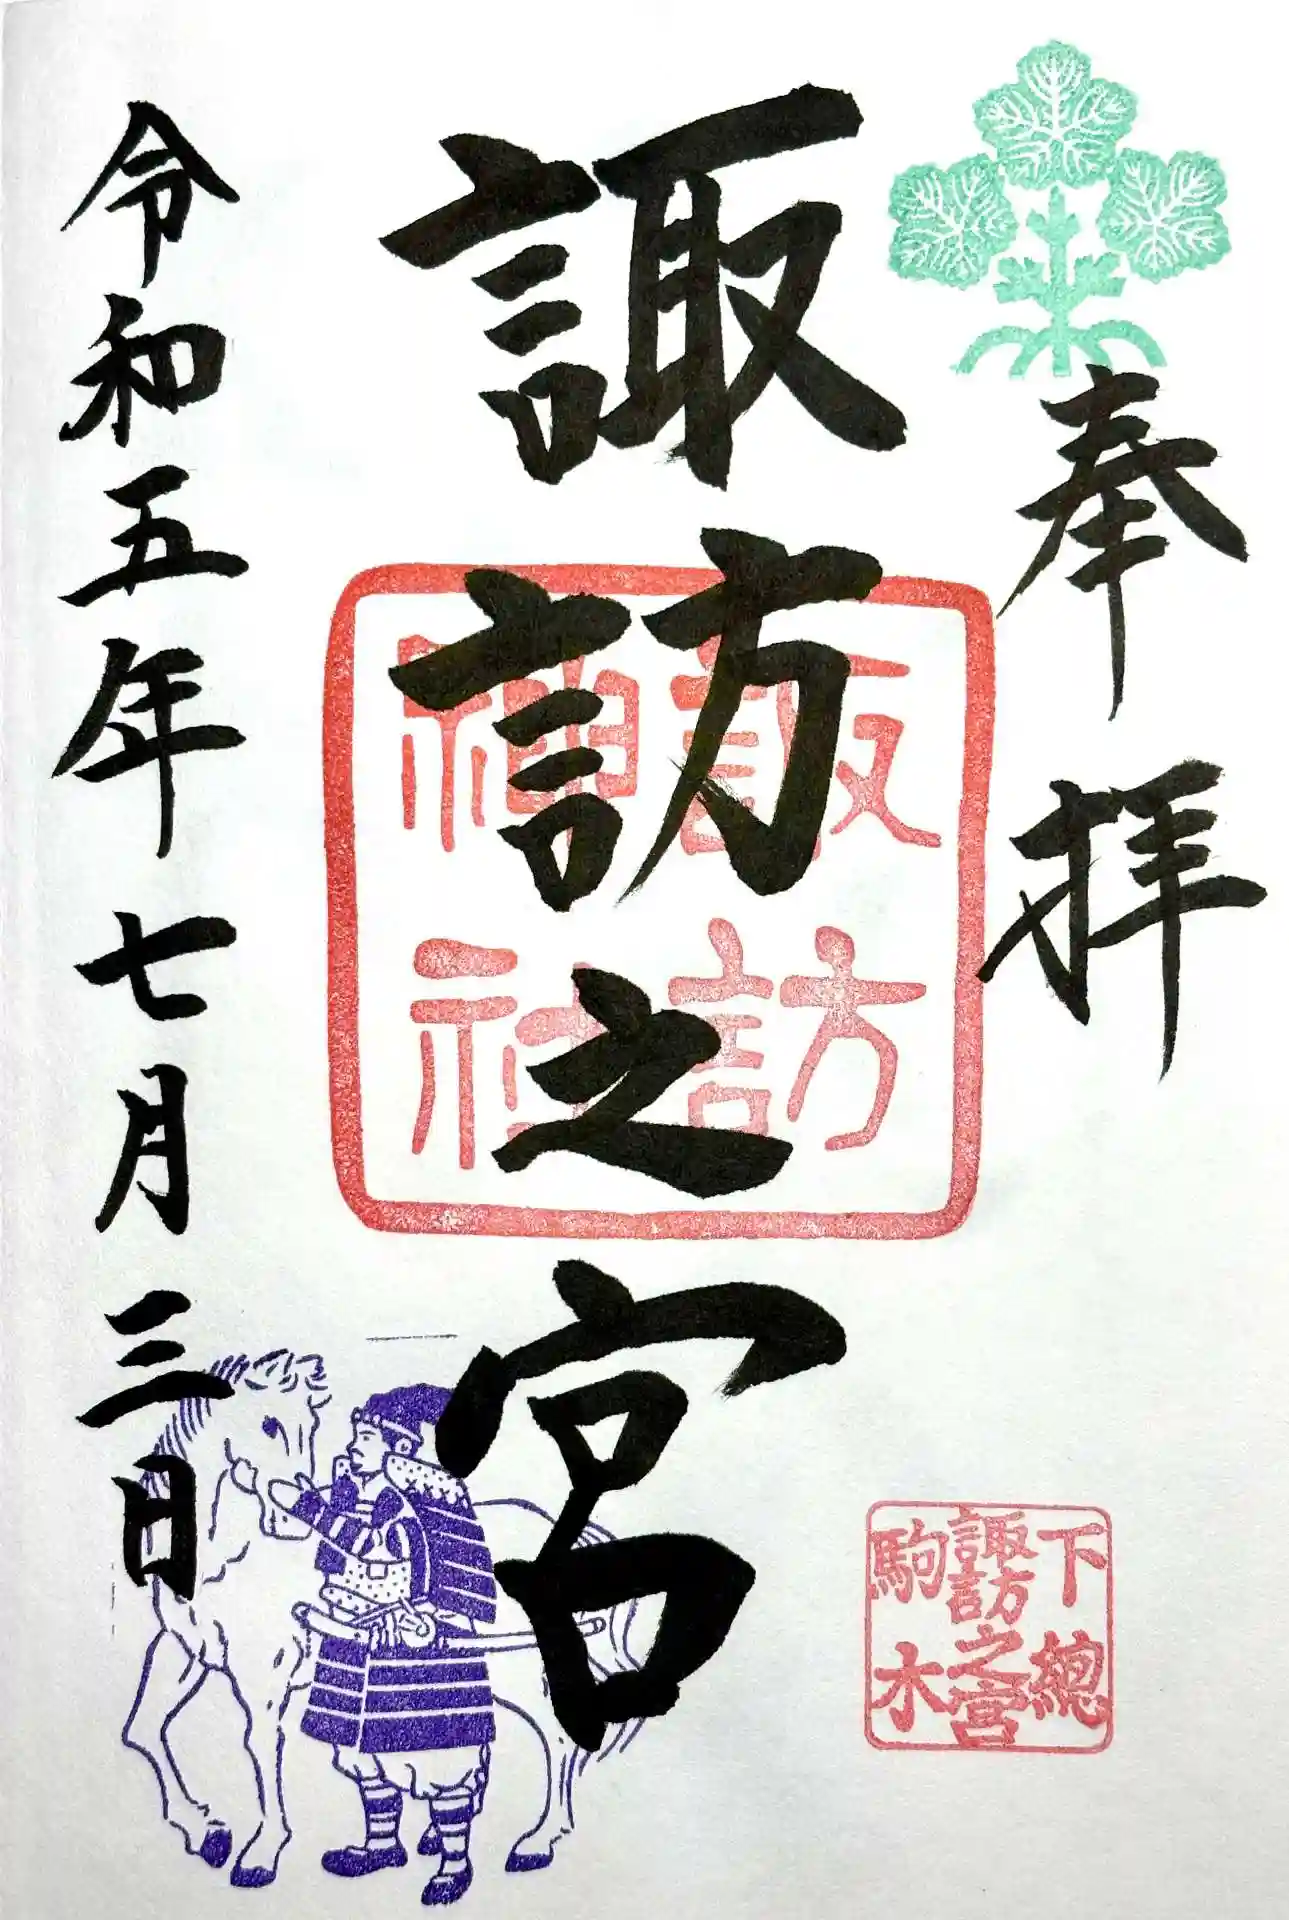 奉拝
諏訪之宮
令和五年七月三日
諏訪
神社
下總
諏訪之宮
駒木